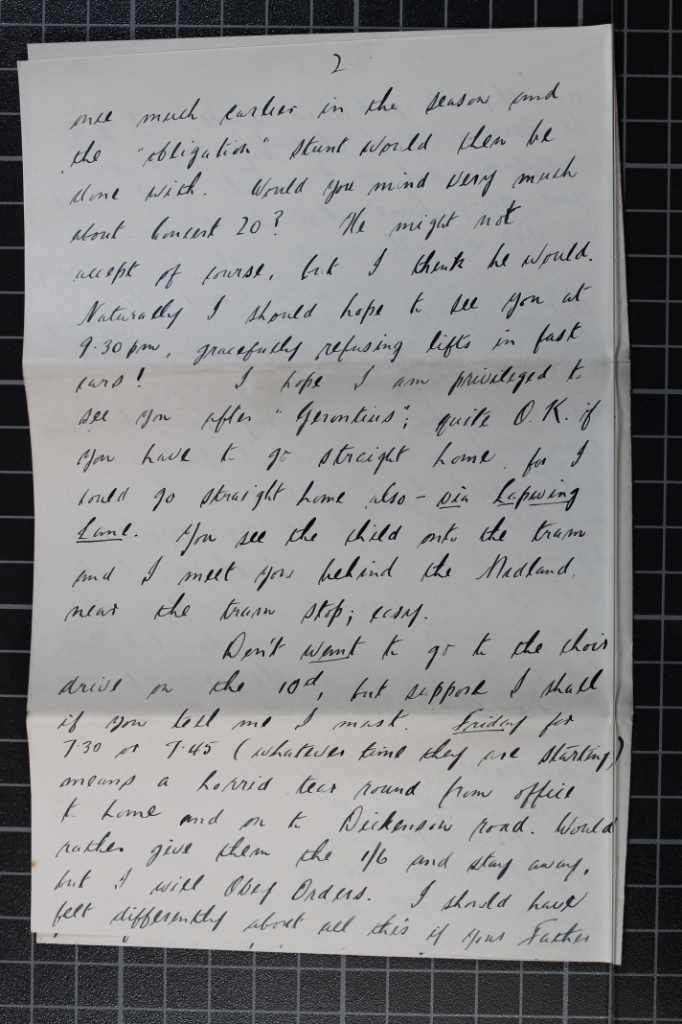 2
once much earlier in the season and
the "obligation" stunt would then be
done with. Would you mind very much
about Concert 20? He might not
accept of course, but I think he would.
Naturally I should hope to see you at
9.30 pm, gracefully refusing lifts in fast
cars! I hope I am privileged to
see you after "Gerontius"; quite O.K. if
you have to go straight home, for I
could go straight home also - via Lapwing
Lane. You see the child onto the tram
and I meet you behind the Midland,
near the tram stop; easy.
Don't want to go to the choir
drive on the 10th, but suppose I shall
if you tell me I must. Friday for
7.30 or 7.45 (whatever time they are starting)
means a horrid tear round from office
to home and on to Dickenson road. Would
rather give them the 1/6 and stay away,
but I will Obey Orders. I should have
felt differently about all this if your Father